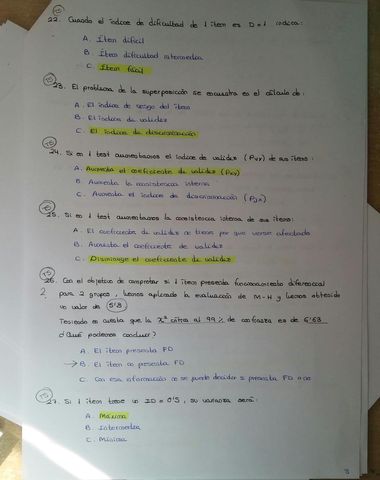 T5
22. Cuando el índice de dificultad de 1 ítem es D=1 indica:
A. Ítem difícil
B. Ítem dificultad intermedia
C. Ítem fácil
T5
23. El problema de la superposición se encuentra en el cálculo de:
A. El índice de sesgo del ítem
B. El índice de validez
C. El índice de discriminación
T5
24. Si en 1 test aumentamos el índice de validez (ρ) de sus ítems:
A. Aumenta el coeficiente de validez (ρ)
B. Aumenta la consistencia interna
C. Aumenta el índice de discriminación (ρ)
T5
25. Si en 1 test aumentamos la consistencia interna de sus ítems:
A. El coeficiente de validez no tiene por qué verse afectado
B. Aumenta el coeficiente de validez
C. Disminuye el coeficiente de validez
T5
26. Con el objetivo de comprobar si 1 ítem presenta funcionamiento diferencial
? para 2 grupos, hemos aplicado la evaluación de M-H y hemos obtenido
un valor de 5'8.
Teniendo en cuenta que la χ² crítica al 99% de confianza es de 6'63
¿Qué podemos concluir?
A. El ítem presenta FD
→ B. El ítem no presenta FD
C. Con esa información no se puede decidir si presenta FD o no
T5
27. Si 1 ítem tiene un ID = 0'5, su varianza será:
A. Máxima
B. Intermedia
C. Mínima